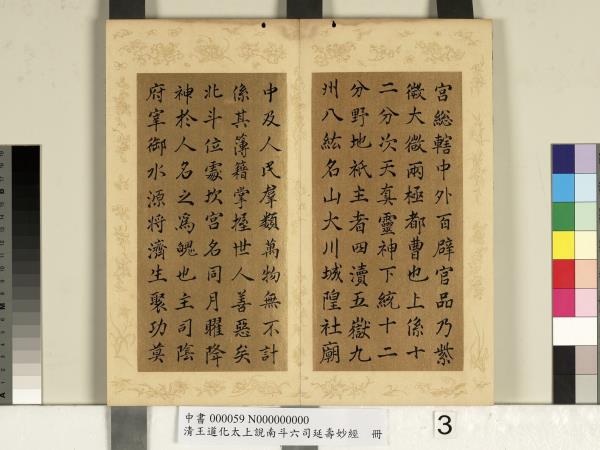 宮総轄中外百辟官品乃紫
微大微兩極都曹也上係十
二分次天真靈神下統十二
分野地祇主者四瀆五嶽九
州八紘名山大川城隍社廟
中及人民羣類萬物無不計
係其簿籍掌握世人善惡矣
北斗位處坎宮名同月曜降
神於人名之為魄也主司陰
府宰御水源将濟生聚功莫
中書 000059 N000000000
清王道化太上說南斗六司延壽妙經 冊
3